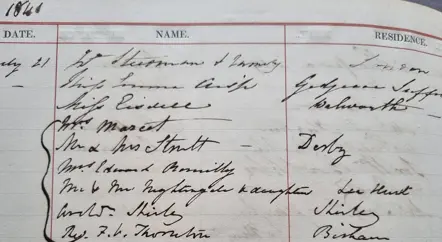 1841
DATE. NAME. RESIDENCE.
21 & Family London
Miss Emma Crisp Gedgrave Suffo
Miss Walworth
Mrs Marcet
Mr & Mrs Strutt — Derby
Mrs Edward Romilly
Mr & Mrs Nightingale & daughters Lea Hurst
Shirley Shirley
Rev. F. V. Thornton Bisham